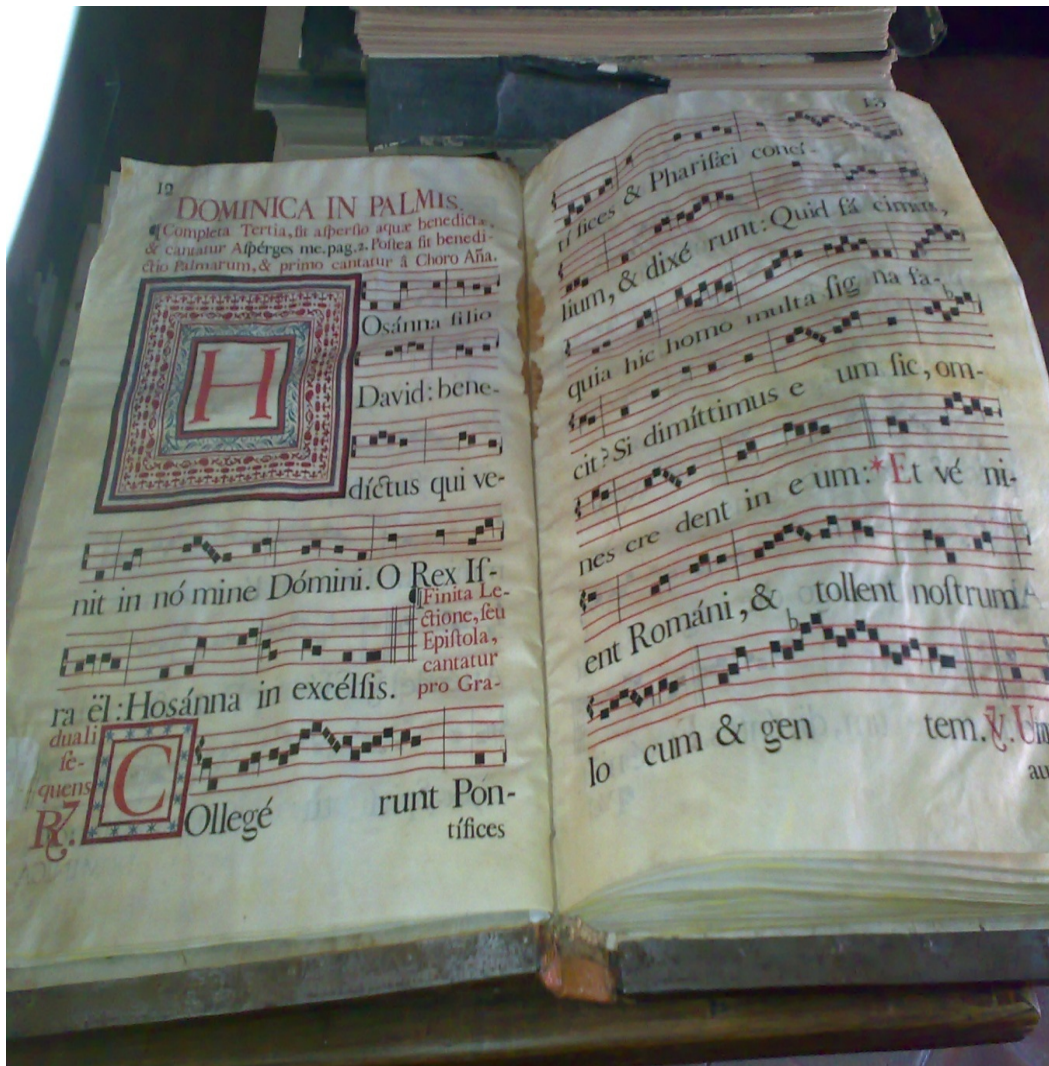 12
DOMINICA IN PALMIS.
¶Completa Tertia, fit aſperſio aquæ benedictæ,
& cantatur Aſpérges me. pag. 2. Poſtea fit benedi-
ctio Palmarum, & primo cantatur á Choro Aña.
H
Osánna filio
David: bene-
díctus qui ve-
nit in nó mine Dómini. O Rex Iſ-
ra ël: Hosánna in excélſis.
¶Finita Le-
ctione, ſeu
Epiſtola,
cantatur
pro Gra-
duali
ſe-
quens
℟.
C
Ollegé runt Pón-
tífices
13
tí fices & Phariſæi concí-
lium, & dixé runt: Quid fá cimus,
quia hic homo multa ſig na fa-
cit? Si dimíttimus e um ſic, om-
nes cre dent in e um: * Et vé ni-
ent Románi, & tollent noſtrum
lo cum & gen tem. ℣. Un
au